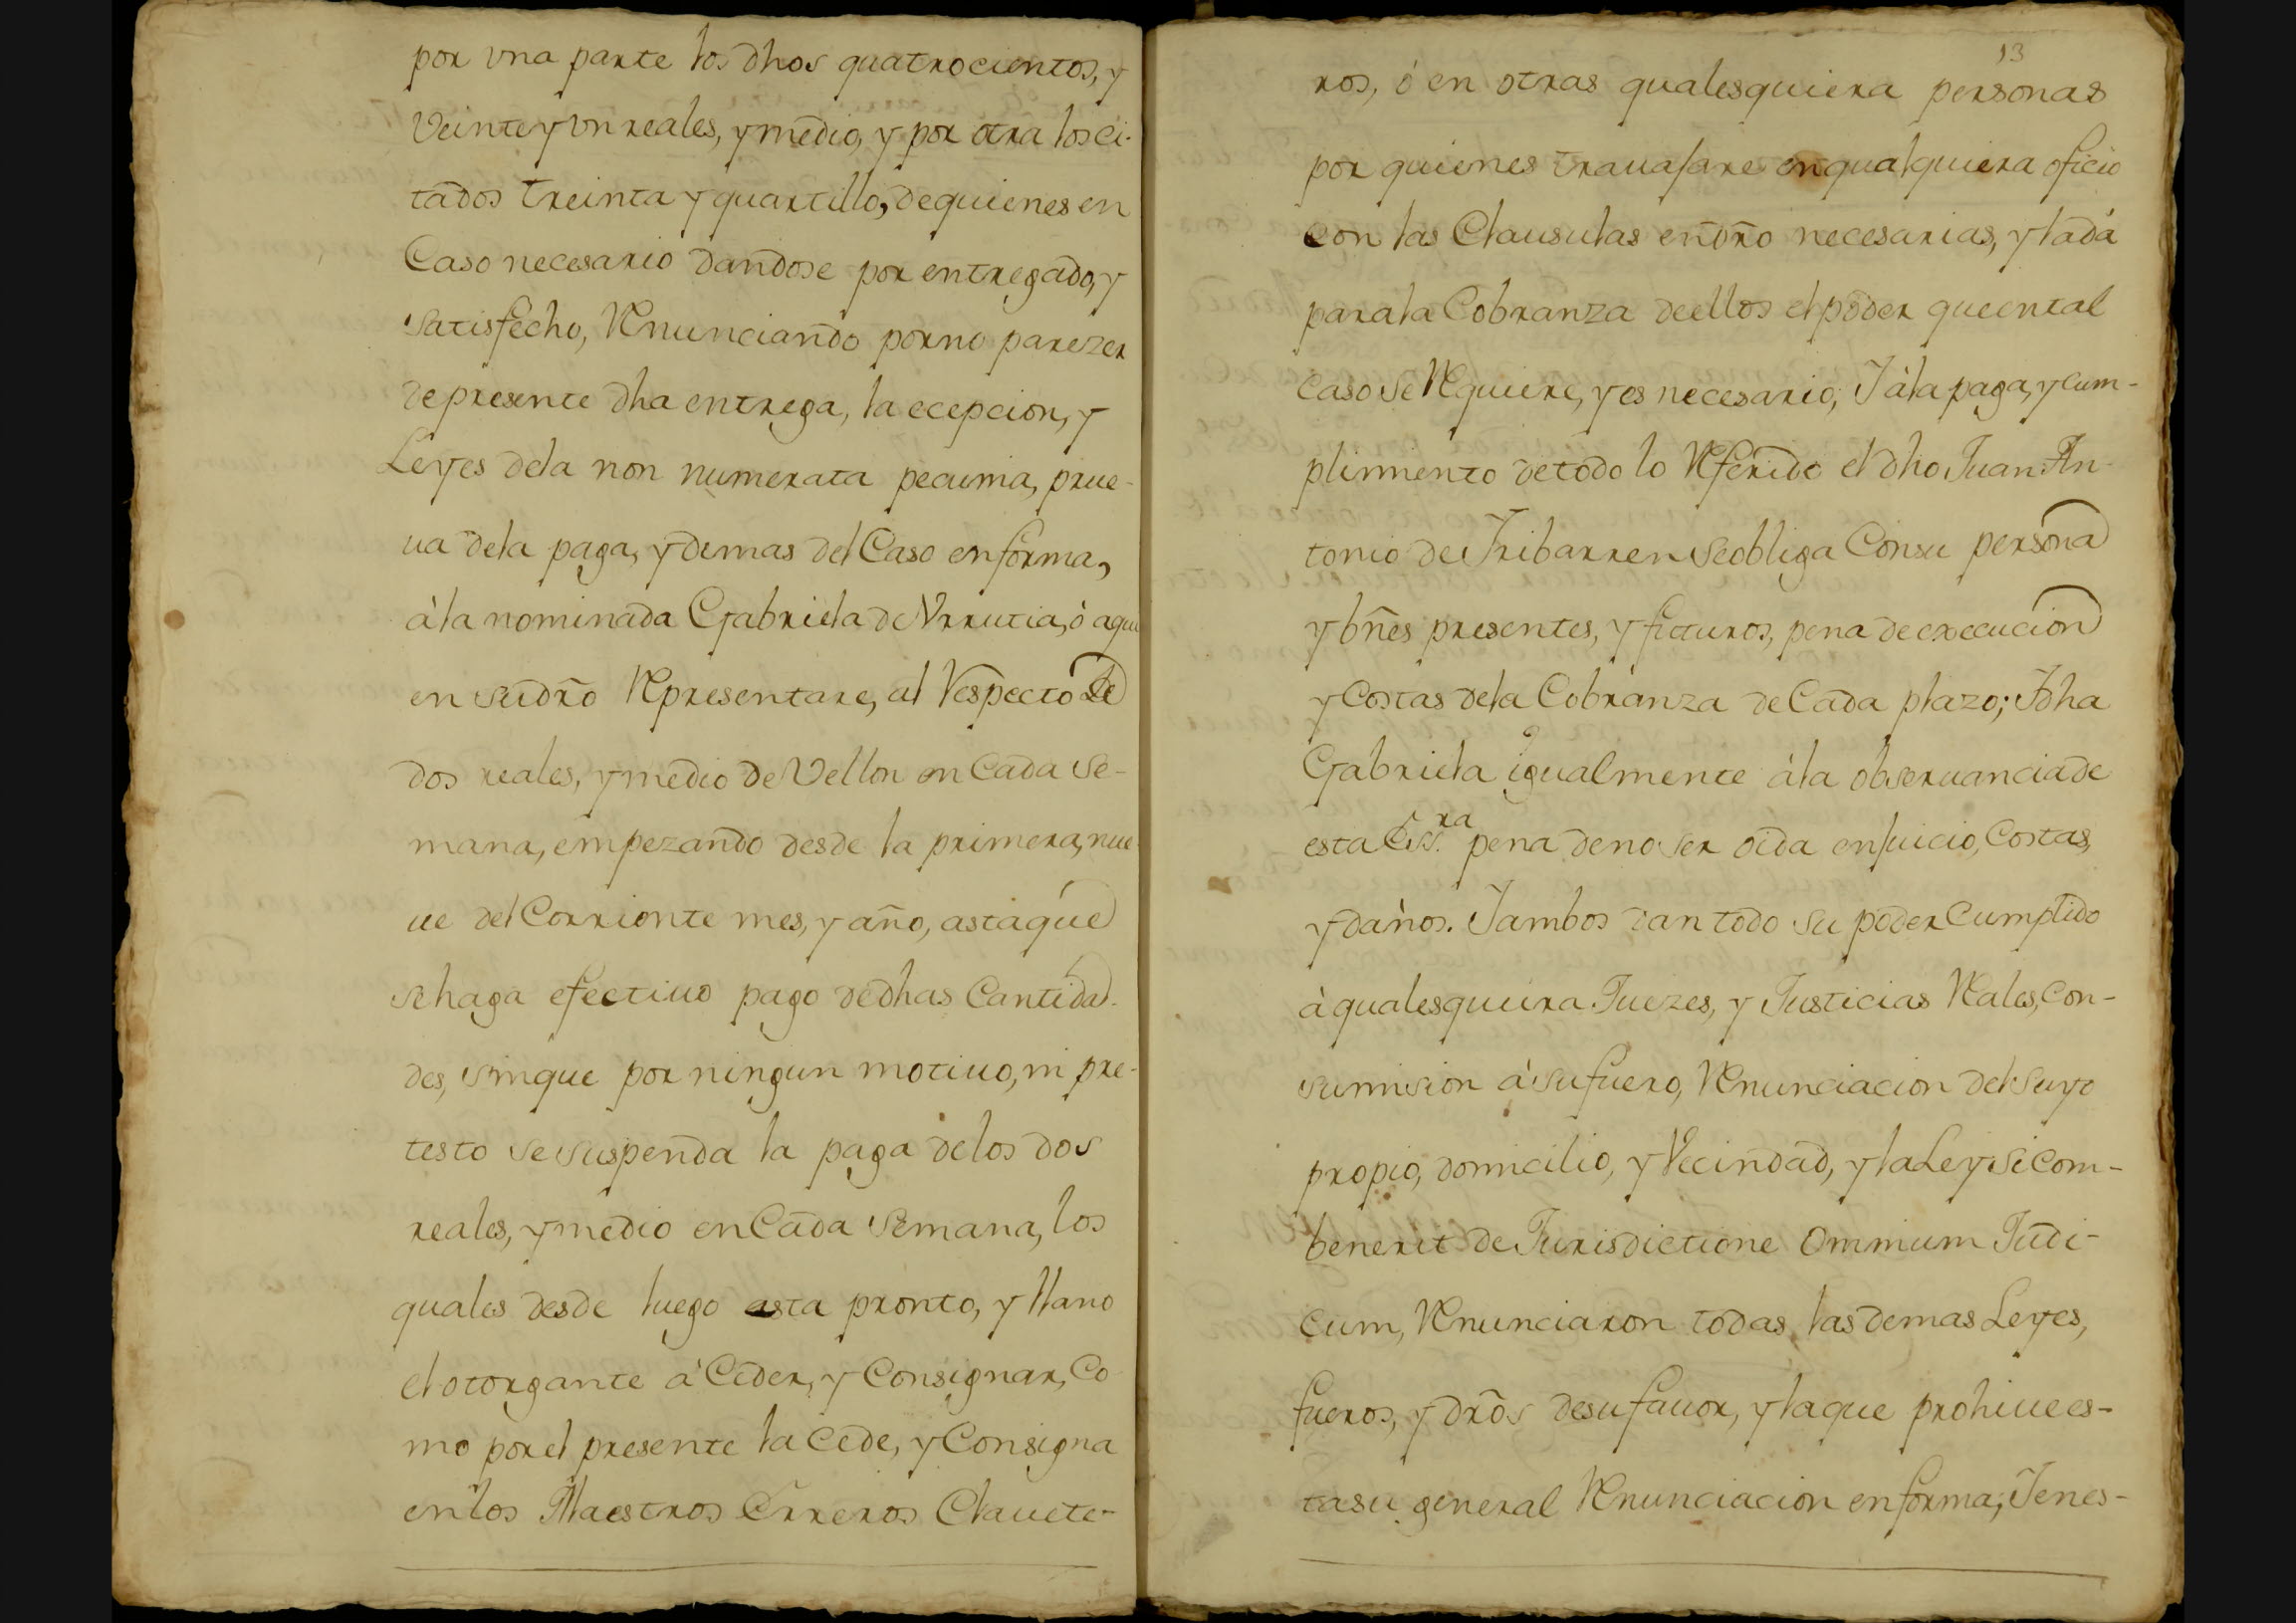 por vna parte los dhos quatrocientos, y
Veinte y vn reales, y medio, y por otra los ci-
tados treinta y quartillo, de quienes en
Caso necesario dandose por entregado, y
satisfecho, Renunciando por no parezer
de presente dha entrega, la ecepcion, y
Leyes dela non numerata pecunia, prue-
ua dela paga, y demas del Caso en forma,
à la nominada Gabriela de Vrrutia, ò aqui
en su dr̃o Representare, al Respecto de
dos reales, y medio de Vellon en Cada se-
mana, empezando desde la primera, nue-
ue del Corrionte mes, y año, asta que
se haga efectiuo pago de dhas Cantida-
des, sin que por ningun motiuo, ni pre-
testo se suspenda la paga de los dos
reales, y medio en Cada Semana, los
quales desde luego asta pronto, y llano
el otorgante à Ceder, y Consignar, Co
mo por el presente la Cede, y Consigna
en los Maestros Errreros Clauete-
13
ros, ó en otras qualesquiera personas
por quienes trauajare en qualquiera oficio
con las Clausulas en dr̃o necesarias, y la dá
para la Cobranza de ellos el poder que en tal
caso se Requiere, y es necesario; Y à la paga, y cum-
plimiento de todo lo Referido el dho Juan An-
tonio de Yribarren se obliga Con su persona
y bñes presentes, y futuros, pena de execucion
y Costas dela Cobranza de Cada plazo; Y dha
Gabriela igualmente à la obseruancia de
esta Ess.ra pena de no ser oida en juicio, Costas,
y daños. Y ambos dan todo su poder Cumplido
à qualesquiera Juezes, y Justicias Reales, Con-
sumision à su fuero, Renunciacion del suyo
propio, domicilio, y Vecindad, y la Ley Si Com-
benerit de Jurisdictione Omnium Judi-
cum, Renunciaron todas las demas Leyes,
fueros, y dr̃os de su fauor, y la que prohiue es-
ta su general Renunciacion en forma; Y en es-